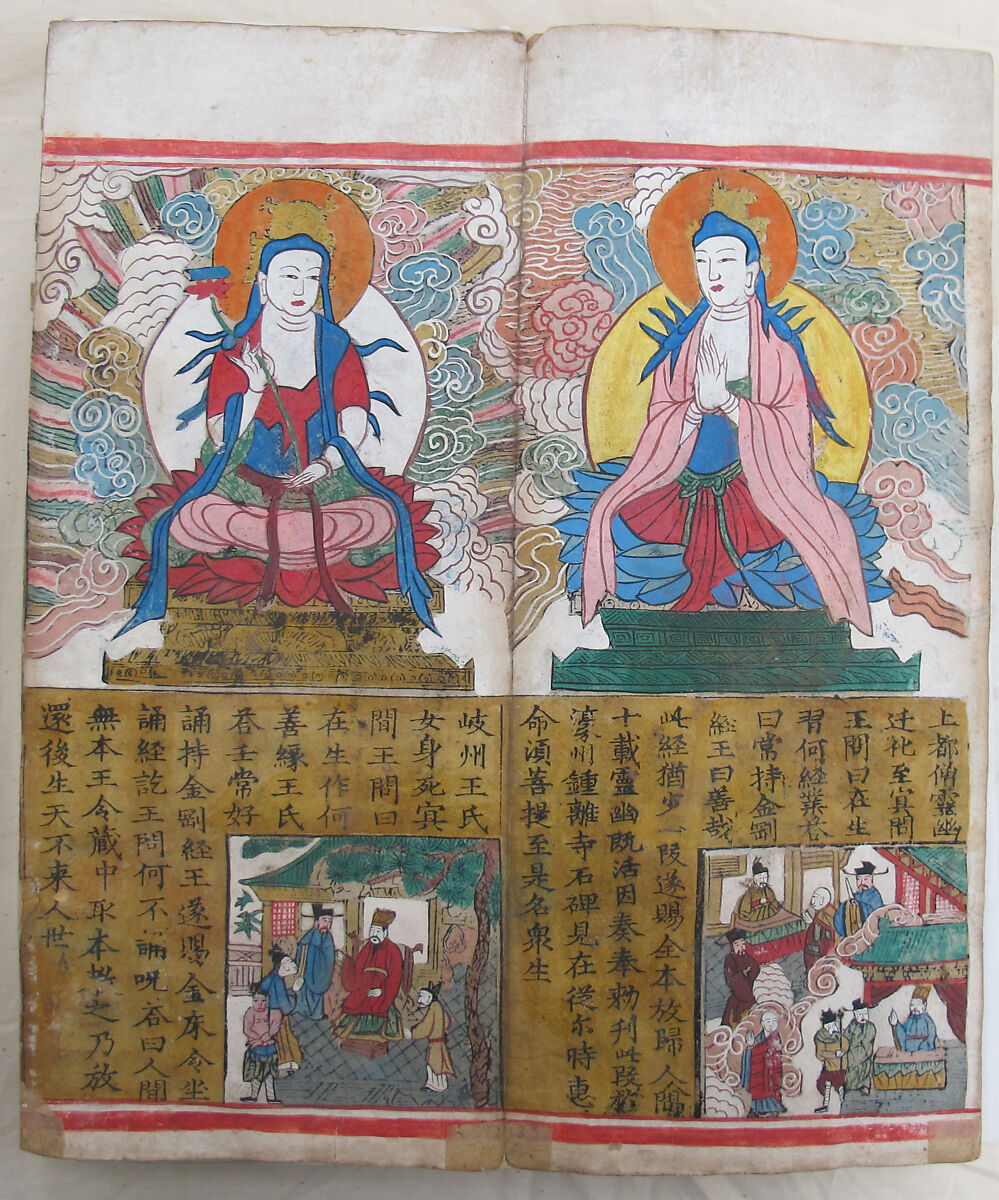 上都僧靈幽
迁化至冥間
王問曰在生
習何經業荅
曰常持金剛
經王曰善哉
此經猶少一段遂賜全本放歸人間
十載靈幽既活因奏奉勑刊此段於
濠州鍾離寺石碑見在從尒時惠
命須菩提至是名衆生
岐州王氏
女身死冥
間王問曰
在生作何
善緣王氏
荅王常好
誦持金剛經王遂賜金床令坐
誦經訖王問何不誦呪荅曰人間
無本王令藏中取本之乃放
還後生天不来人世